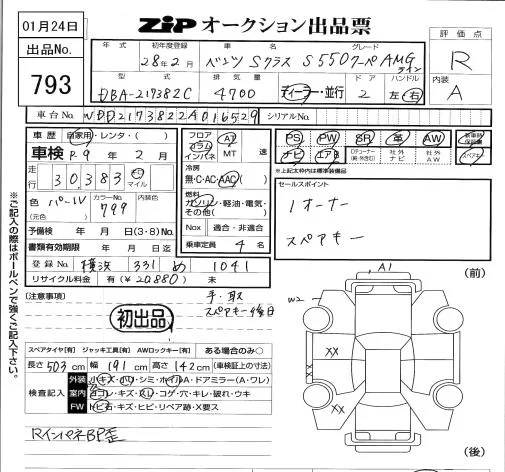 01月24日
出品No.
793
ZiP オークション出品票
評価点
R
内装
A
年式 初年度登録 車名 グレード
28年2月 ベンツ Sクラス S550クーペAMGライン
型式 排気量 ドア ハンドル
DBA-217382C 4700 ディーラー・並行 2 左 右
車台No. WDD2173822A016529 シリアルNo.
車歴 自家用・レンタ・( )
車検 R.9年 2月
走行 30,383 km マイル
色 パール カラーNo. 799 内装色
(元色)
予備検 年 月 日(3・8)No.
書類有効期限 年 月 日迄
登録No. 横浜 331 め 1041
リサイクル料金 有(¥20880) 未
フロア コラム インパネ AT MT 速
冷房
無・C・AC・AAC
燃料
ガソリン・軽油・電気・その他( )
Nox 適合・非適合
乗車定員 4名
PS PW SR 革 AW 新車時保証書
ナビ エアB Dチューナー 社外ナビ 社外AW スペアキー
*上記太枠内は標準装備品
セールスポイント
1オーナー
スペアキー
※ご記入の際はボールペンで強くご記入下さい。
(注意事項)
手・取
スペアキー後日
初出品
スペアタイヤ【有】 ジャッキ工具【有】 AWロックキー【有】 ある場合のみ○
長さ 503cm 幅 191cm 高さ 142cm (車検証上の寸法)
検査記入
外装 小キズ・小凹・シミ・ホイルA・ドアミラー(A・ワレ)
室内 ヨゴレ・キズ・スレ・コゲ・穴・キレ・破れ・ウキ
FW トビ石・キズ・ヒビ・リペア跡・X要ス
RインパネBP歪
(前)
A1
W2
XX
XX
XX
(後)